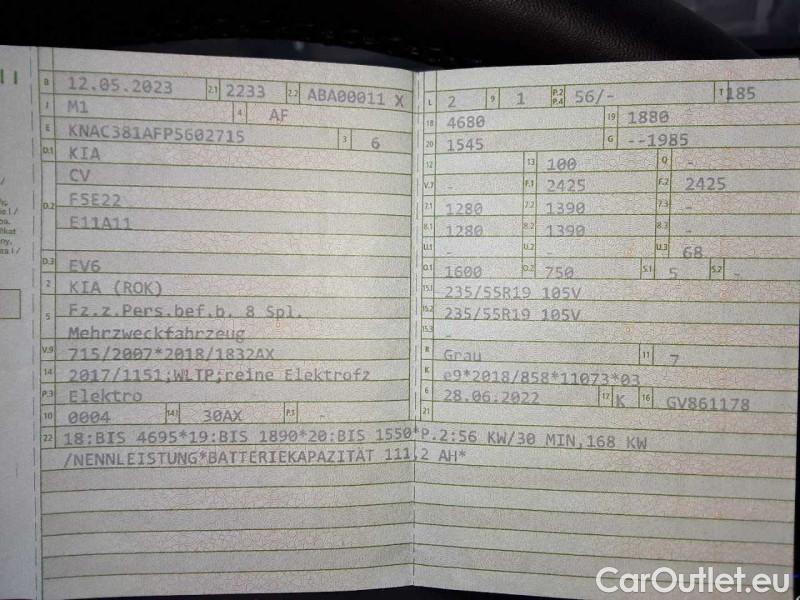 B 12.05.2023 2.1 2233 2.2 ABA00011 X
J M1 4 AF
E KNAC381AFP5602715 3 6
D.1 KIA
CV
D.2 F5E22
E11A11
D.3 EV6
2 KIA (ROK)
5 Fz.z.Pers.bef.b. 8 Spl.
Mehrzweckfahrzeug
V.9 715/2007*2018/1832AX
14 2017/1151;WLTP;reine Elektrofz
P.3 Elektro
10 0004 14.1 30AX P.1 -
22 18:BIS 4695*19:BIS 1890*20:BIS 1550*P.2:56 KW/30 MIN,168 KW
/NENNLEISTUNG*BATTERIEKAPAZITÄT 111,2 AH*
L 2 9 1 P.2 P.4 56/- T 185
18 4680 19 1880
20 1545 G --1985
12 - 13 100 Q -
V.7 - F.1 2425 F.2 2425
7.1 1280 7.2 1390 7.3 -
8.1 1280 8.2 1390 8.3 -
U.1 - U.2 - U.3 68
O.1 1600 O.2 750 S.1 5 S.2 -
15.1 235/55R19 105V
15.2 235/55R19 105V
15.3 -
R Grau 11 7
K e9*2018/858*11073*03
6 28.06.2022 17 K 16 GV861178
21
CarOutlet.eu